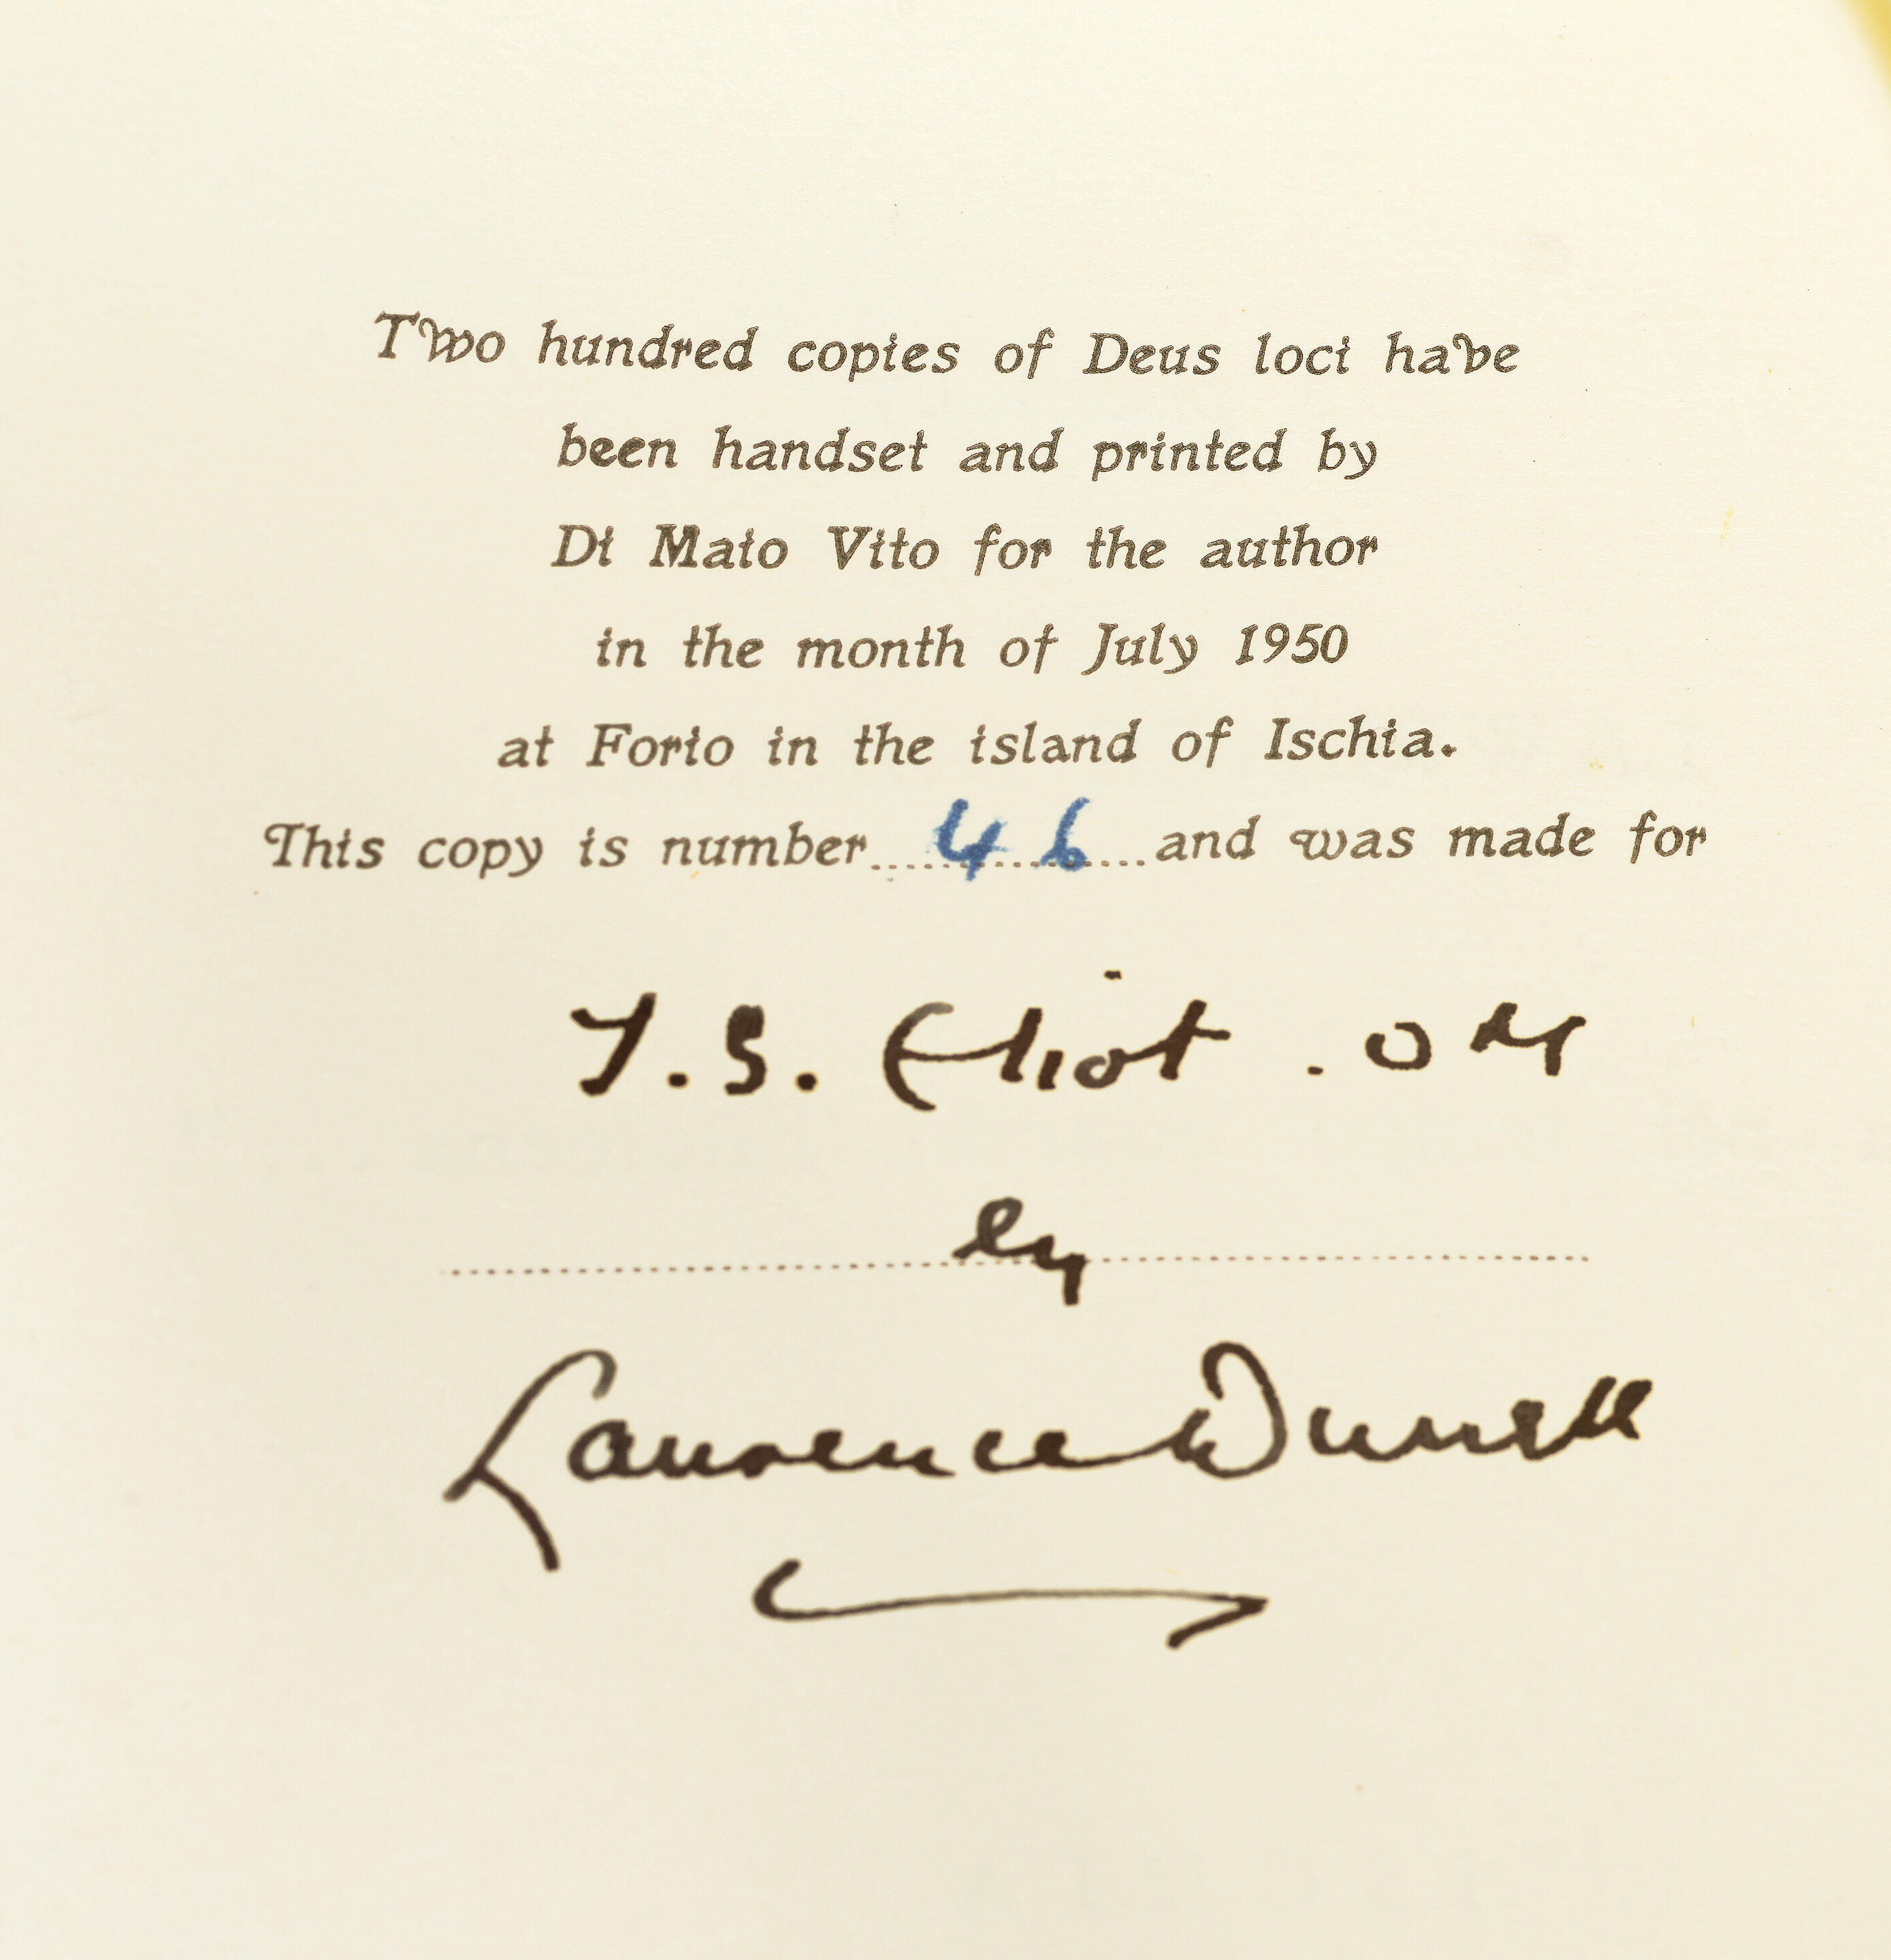 Two hundred copies of Deus loci have
been handset and printed by
Di Maio Vito for the author
in the month of July 1950
at Forio in the island of Ischia.
This copy is number....46....and was made for
T.S. Eliot . OM
by
Lawrence Durrell